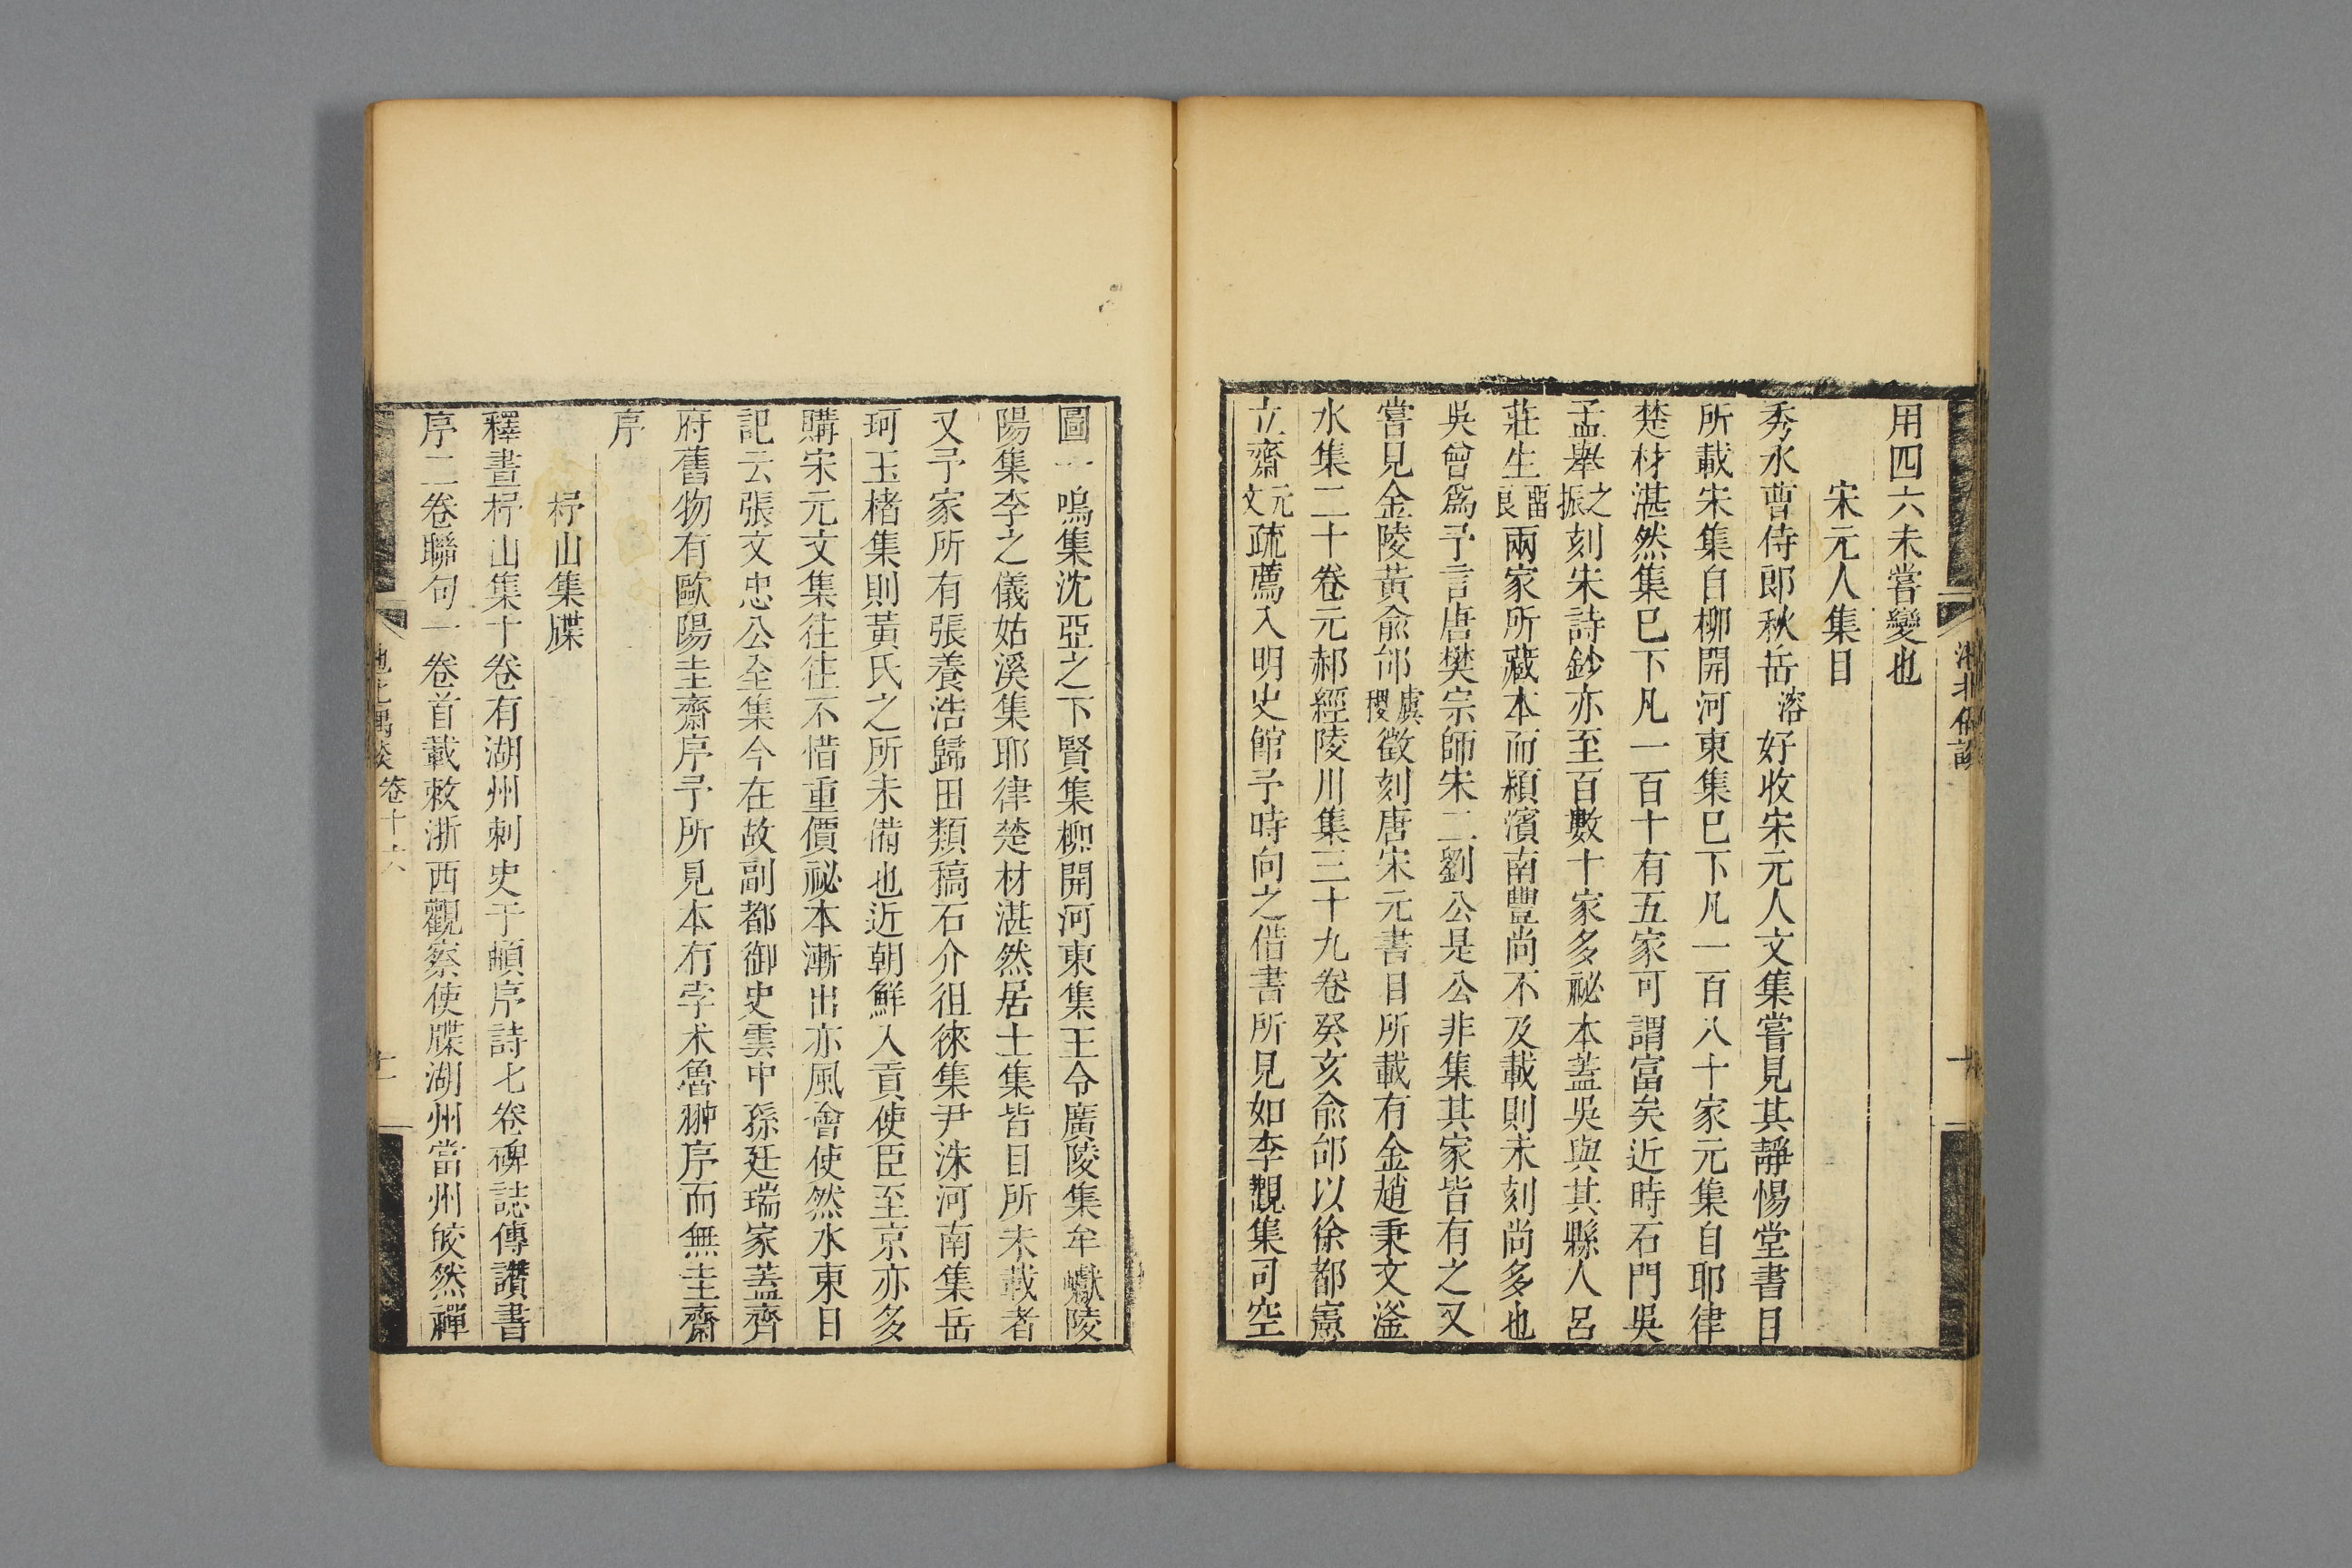 用四六未嘗變也
宋元人集目
秀水曹侍郎秋岳溶好收宋元人文集嘗見其靜惕堂書目
所載宋集自柳開河東集巳下凡一百八十家元集自耶律
楚材湛然集巳下凡一百十有五家可謂富矣近時石門吳
孟舉之振刻宋詩鈔亦至百數十家多祕本蓋吳與其縣人呂
莊生畱良兩家所藏本而潁濱南豐尚不及載則未刻尚多也
吳曾爲予言唐樊宗師宋二劉公是公非集其家皆有之又
嘗見金陵黃俞邰虞稷徵刻唐宋元書目所載有金趙秉文滏
水集二十卷元郝經陵川集三十九卷癸亥俞邰以徐都憲
立齋元文疏薦入明史館予時向之借書所見如李觀集司空
圖一鳴集沈亞之下賢集柳開河東集王令廣陵集牟巘陵
陽集李之儀姑溪集耶律楚材湛然居士集皆目所未載者
又予家所有張養浩歸田類稿石介徂徠集尹洙河南集岳
珂玉楮集則黃氏之所未備也近朝鮮入貢使臣至京亦多
購宋元文集往往不惜重價祕本漸出亦風會使然水東日
記云張文忠公全集今在故副都御史雲中孫廷瑞家蓋齊
府舊物有歐陽圭齋序予所見本有孛朮魯翀序而無圭齋
序
杼山集牒
釋晝杼山集十卷有湖州刺史于頔序詩七卷碑誌傳讚書
序二卷聯句一卷首載敕浙西觀察使牒湖州當州皎然禪
池北偶談 卷十六 十一